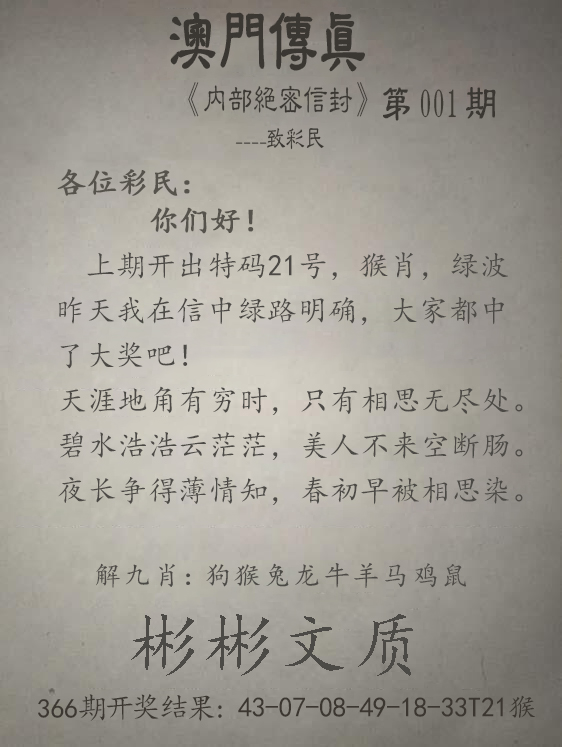 澳門傳眞
《内部絕密信封》第001期
----致彩民
各位彩民：
你们好！
上期开出特码21号，猴肖，绿波
昨天我在信中绿路明确，大家都中
了大奖吧！
天涯地角有穷时，只有相思无尽处。
碧水浩浩云茫茫，美人不来空断肠。
夜长争得薄情知，春初早被相思染。
解九肖：狗猴兔龙牛羊马鸡鼠
彬彬文质
366期开奖结果：43-07-08-49-18-33T21猴